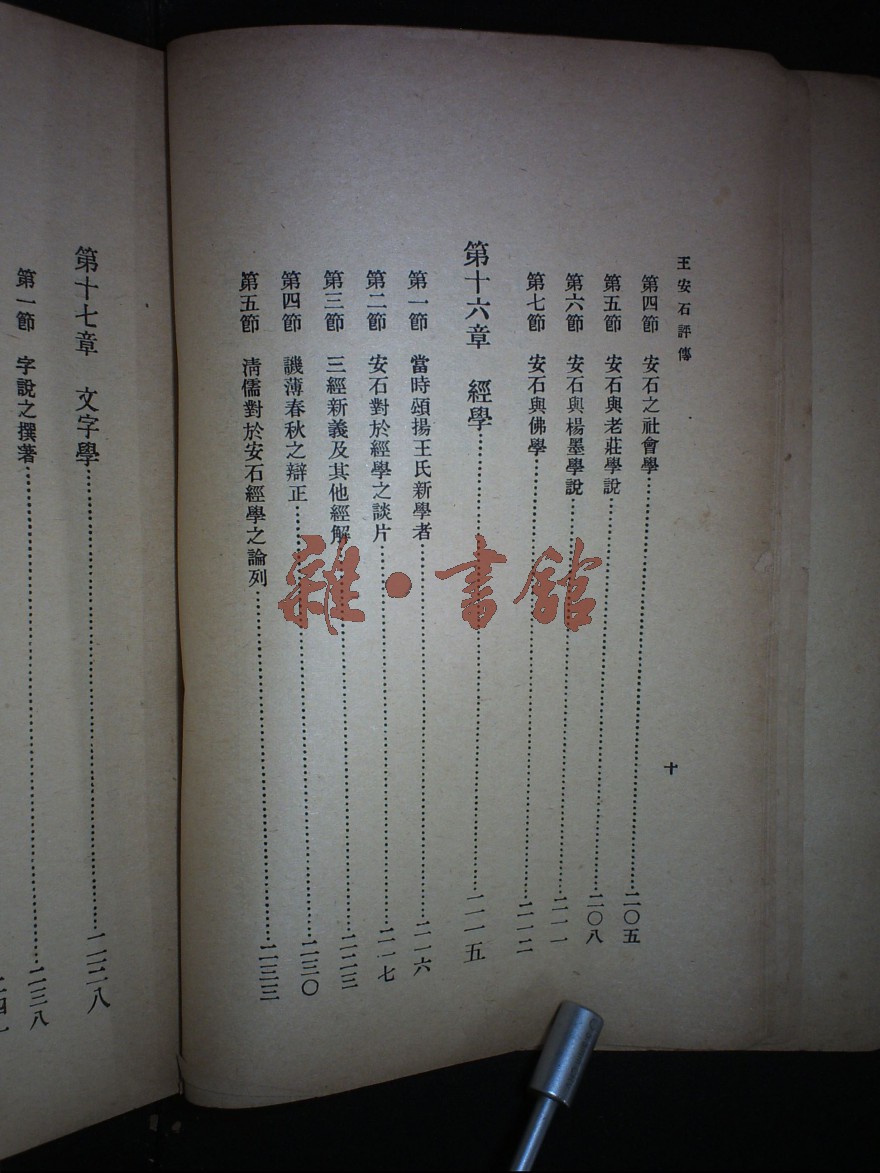 王安石評傳
十
第四節 安石之社會學……二〇五
第五節 安石與老莊學說……二〇八
第六節 安石與楊墨學說……二一一
第七節 安石與佛學……二一二
第十六章 經學……二一五
第一節 當時頌揚王氏新學者……二一六
第二節 安石對於經學之談片……二一七
第三節 三經新義及其他經解……二二三
第四節 譏薄春秋之辯正……二三〇
第五節 清儒對於安石經學之論列……二三三
第十七章 文字學……二三八
第一節 字說之撰著……二三八
二四一
雜·書館